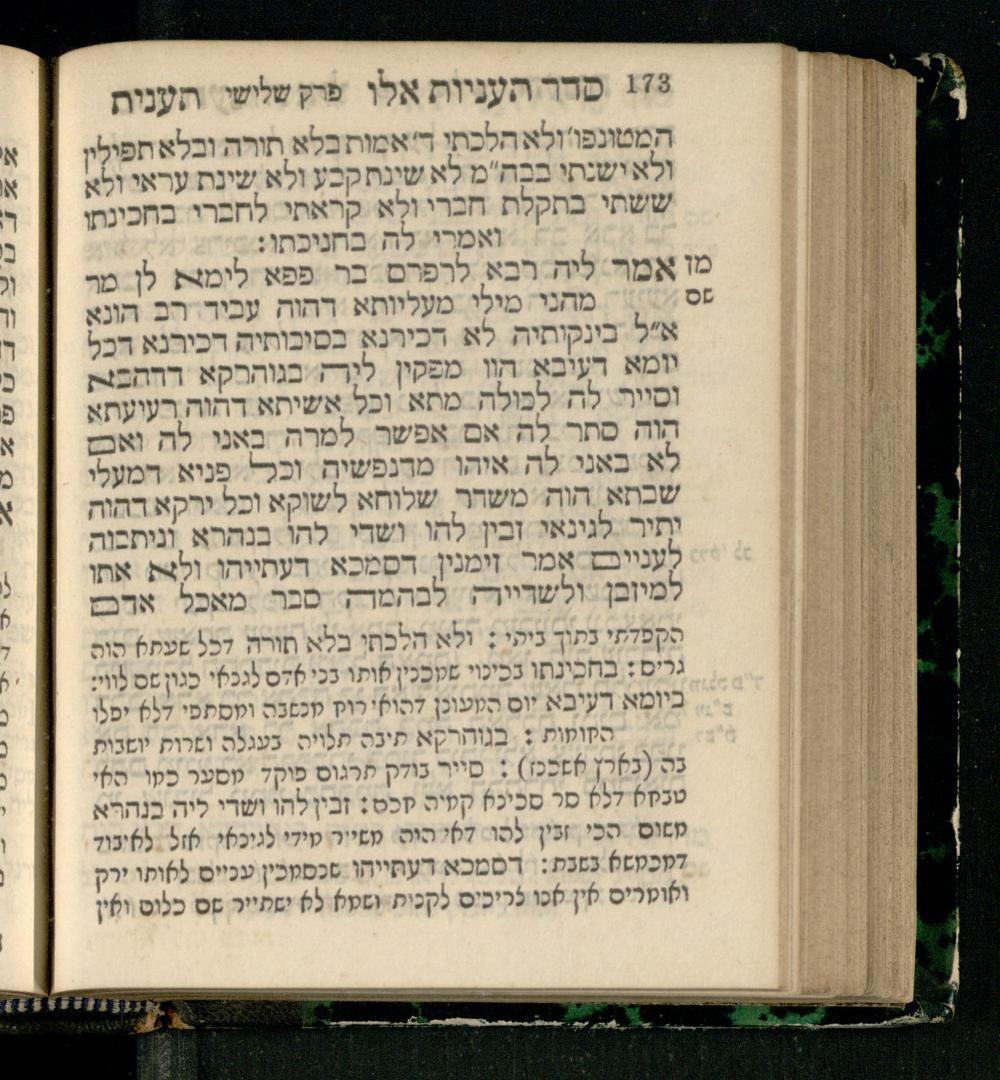 173 סדר תעניות אלו פרק שלישי תענית
המטונפו' ולא הלכתי ד' אמות בלא תורה ובלא תפילין
ולא ישנתי בבה"מ לא שינת קבע ולא שינת עראי ולא
ששתי בתקלת חברי ולא קראתי לחברי בחכינתו
ואמרי לה בחניכתו :
מז אמר ליה רבא לרפרם בר פפא לימא לן מר
שם מהני מילי מעליותא דהוה עביד רב הונא
א"ל בינקותיה לא דכירנא בסיבותיה דכירנא דכל
יומא דעיבא הוו מפקין ליה בגוהרקא דדהבא
וסייר לה לכולה מתא וכל אשיתא דהוה רעיעתא
הוה סתר לה אם אפשר למרה באני לה ואם
לא באני לה איהו מדנפשיה וכל פניא דמעלי
שבתא הוה משדר שלוחא לשוקא וכל ירקא דהוה
יתיר לגינאי זבין להו ושדי להו בנהרא וניתבוה
לעניים אמר זימנין דסמכא דעתייהו ולא אתו
למיזבן ולשדייה לבהמה סבר מאכל אדם
הקפדתי בתוך ביתי : ולא הלכתי בלא תורה דכל שעתא הוה
גריס : בחכינתו בכינוי שמכנין אותו בני אדם לגנאי כגון שם לווי:
ביומא דעיבא יום המעונן דהואי רוח מנשבה ומסתפי דלא יפלו
החומות : בגוהרקא תיבה תלויה בעגלה ושרות יושבות
בה (בארץ אשכנז) : סייר בודק תרגום פוקד מסער כמו האי
טבחא דלא סר סכינא קמיה חכם : זבין להו ושדי ליה בנהרא
משום הכי זבין להו דאי הוה משייר מידי לגינאי אזל לאיבוד
דמכמשא בשבת: דסמכא דעתייהו שנסמכין עניים לאותו ירק
ואומרים אין אנו צריכים לקנות ושמא לא ישתייר שם כלום ואין